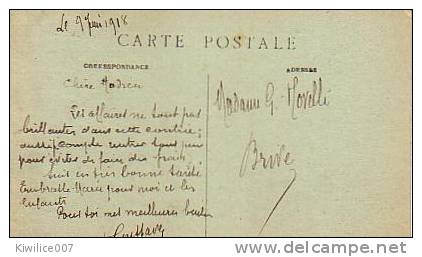 Le 9 Juin 1918
CARTE POSTALE
CORRESPONDANCE
ADRESSE
Chère
Les affaires ne sont pas
brillantes dans cette contrée
compte rentrer
pour éviter de faire des frais
suis en très bonne santé
Embrasse Marie pour moi et les
enfants
Pour toi mes meilleurs
Gustave
Madame G. Novelli
Brive
© Kiwilice007
http://www.delcampe.net